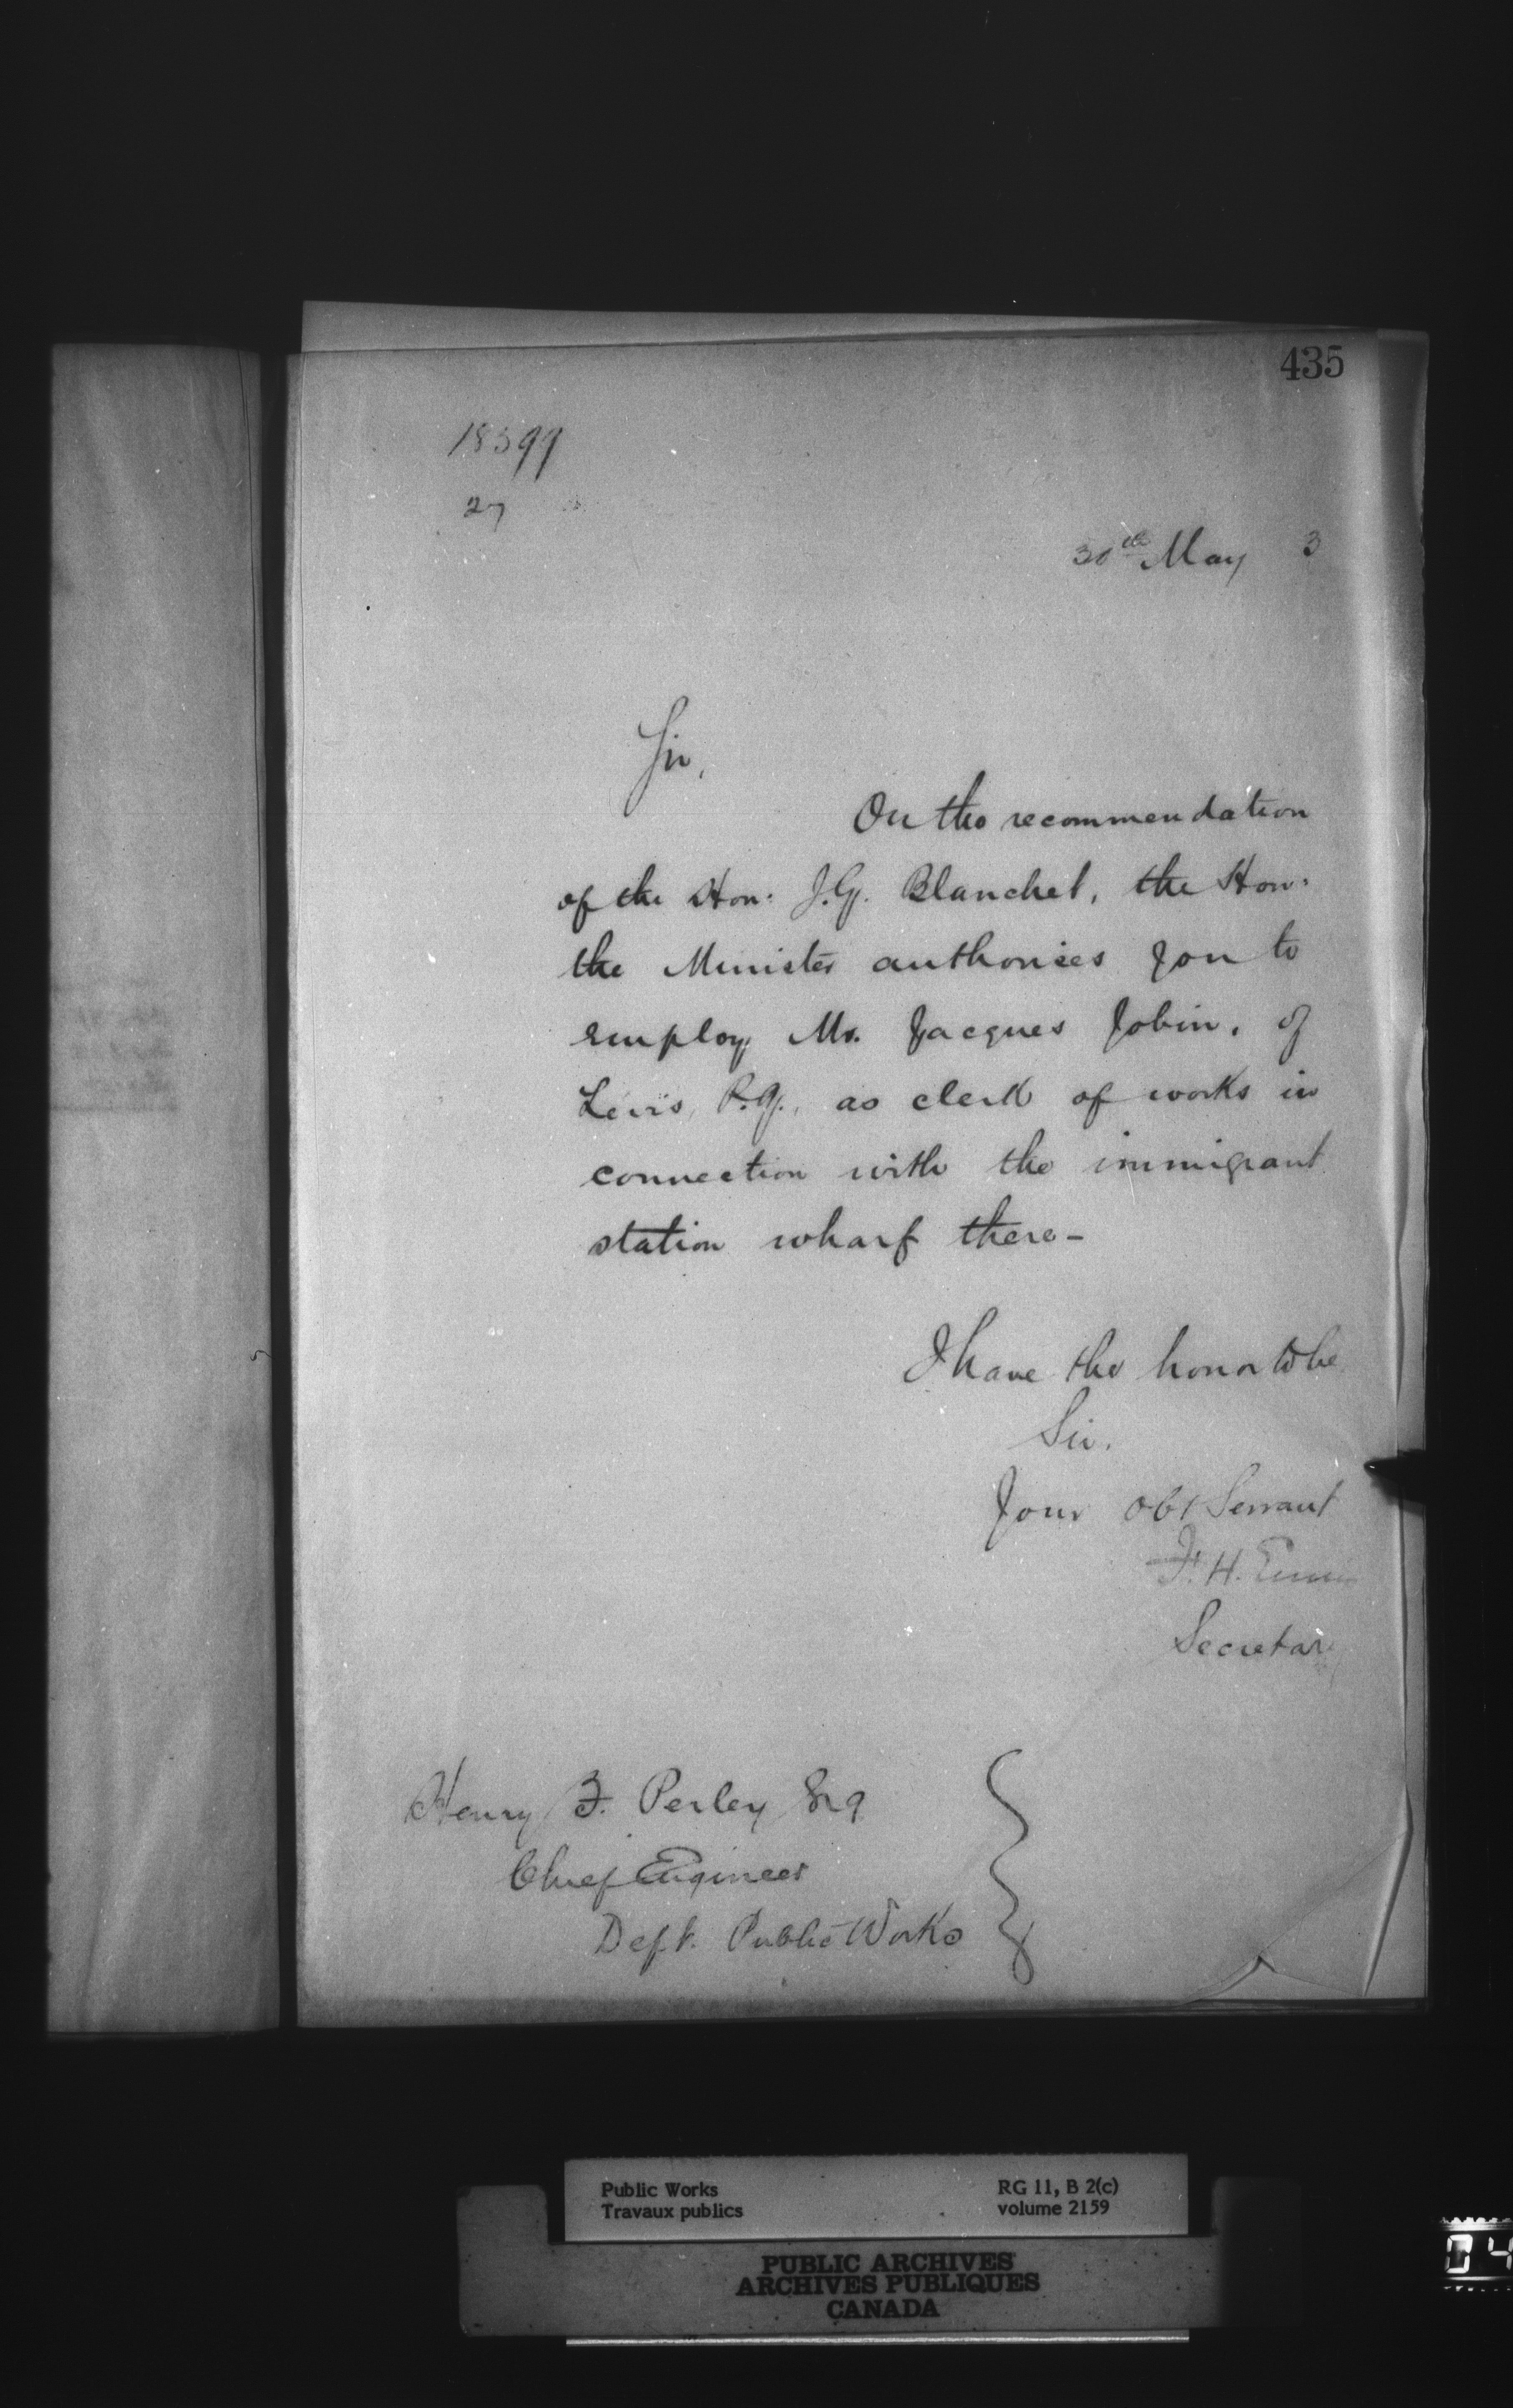 435
18399
27
30th May 3
Sir,
On the recommendation
of the Hon: J.G. Blanchet, the Hon:
the Minister authorises you to
employ Mr. Jacques Jobin, of
Levis, P.Q., as clerk of works in
connection with the immigrant
station wharf there-
I have the honor to be
Sir.
Your obt Servant
F. H. Ennis
Secretary
Henry F. Perley Esq
Chief Engineer
Dept. Public Works
Public Works
Travaux publics
RG 11, B 2(c)
volume 2159
PUBLIC ARCHIVES
ARCHIVES PUBLIQUES
CANADA
04